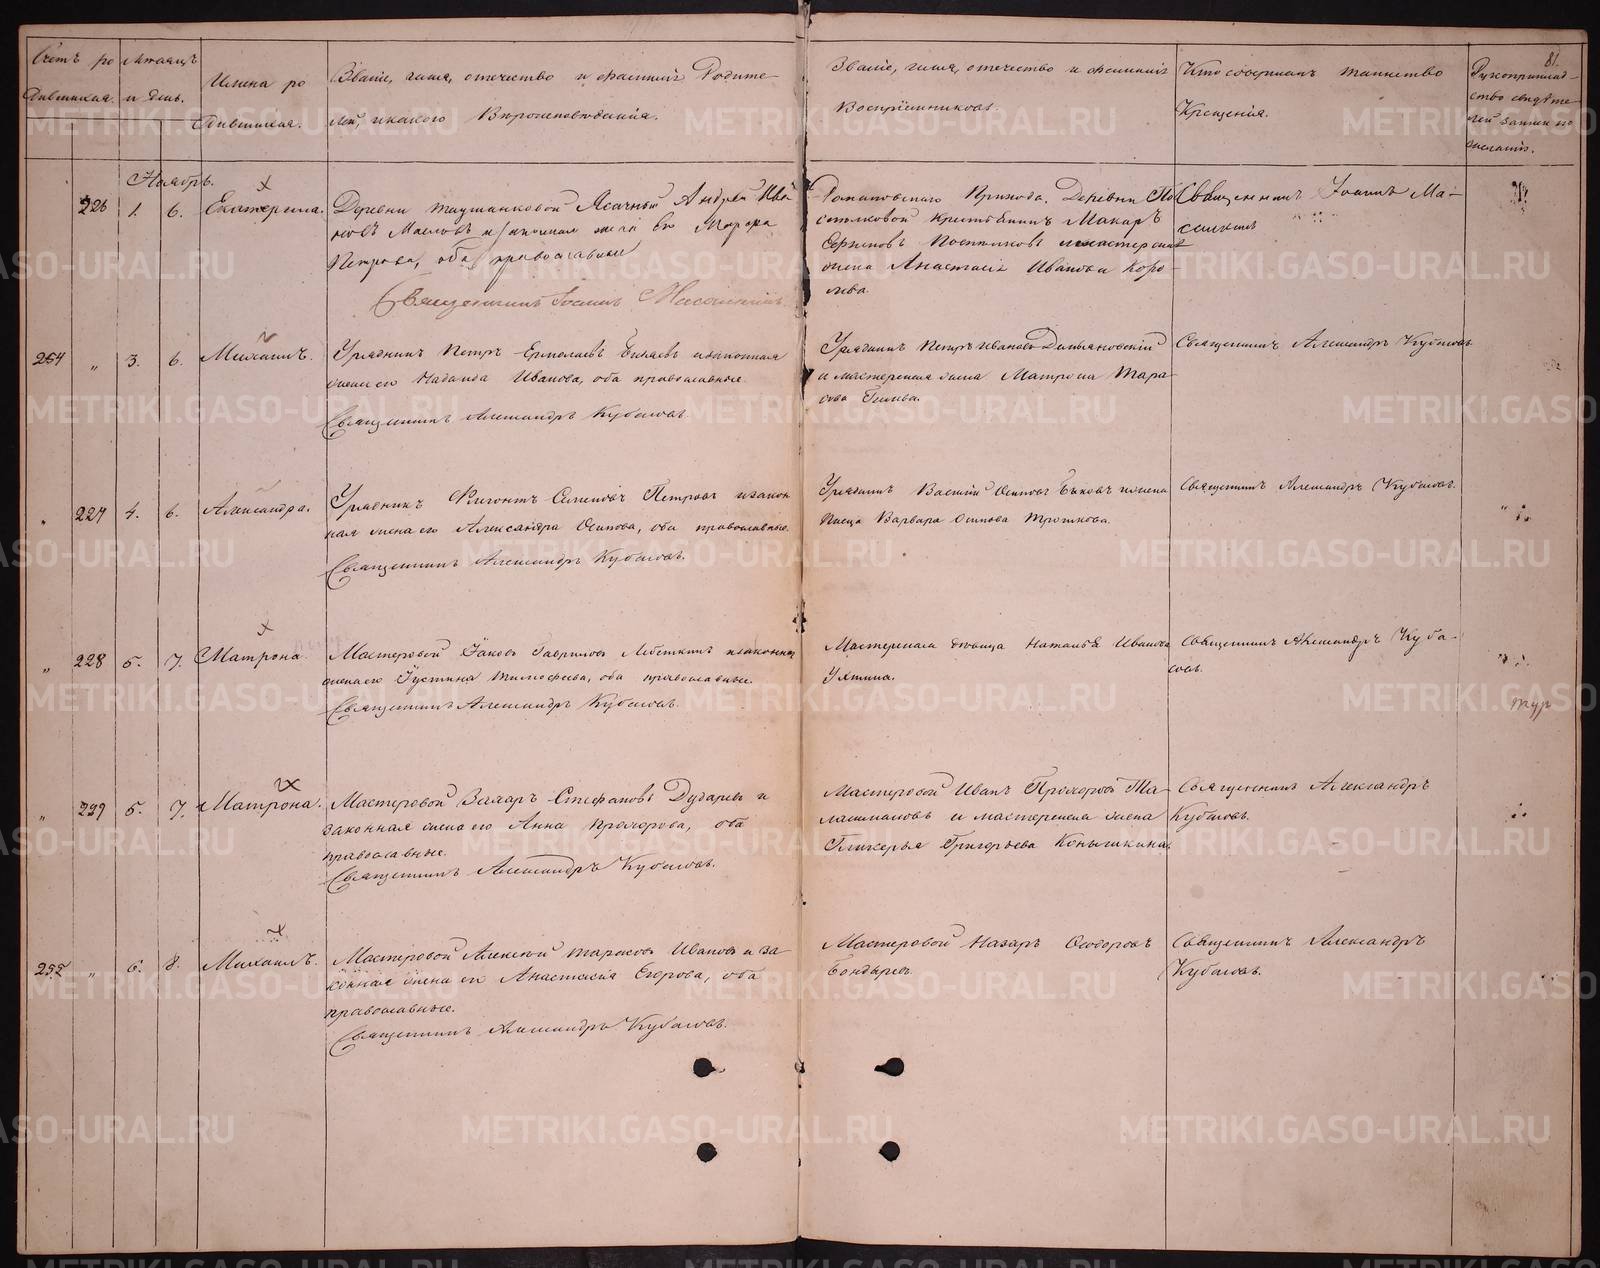 81.
Счетъ ро
дившихся.
Мѣсяцъ
и день.
Имена ро
дившихся.
Званіе, имя, отчество и фамилія Родите-
лей, и какого Вѣроисповѣданія.
Званіе, имя, отчество и фамилія
Воспріемниковъ.
Кто совершилъ таинство
Крещенія.
Рукоприклад-
ство свидѣте-
лей записи по
желанію.
Ноябрь.
226 1. 6. Екатерина.
Деревни Таушканковой Ясачный Андрей Ива
новъ Масловъ и законная жена его
Петрова, оба православные
Священникъ Іоаннъ
Романовскаго Прихода, Деревни По
стниковой крестьянинъ Макаръ
Постниковъ и мастерская
жена Анастасія Иванова Коро-
лева.
Священникъ Іоаннъ
254 " 3. 6. Михаилъ.
Урядникъ Петръ Ермолаевъ Бѣляевъ и законная
жена его Надежда Иванова, оба православные.
Священникъ Александръ Кубасовъ.
Урядникъ Петръ Ивановъ Демьяновскій
и мастерская жена Матрона Тара-
сова
Священникъ Александръ Кубасовъ
" 227 4. 6. Александра.
Урядникъ Семеновъ Петровъ и закон
ная жена его Александра Осипова, оба православные.
Священникъ Александръ Кубасовъ.
Урядникъ Василій Осиповъ Быковъ и жена
писца Варвара Осипова Трошкова.
Священникъ Александръ Кубасовъ.
" 228 5. 7. Матрона.
Мастеровой Яковъ Гавриловъ и законная
жена его Іустина Тимофеева, оба православные.
Священникъ Александръ Кубасовъ.
Мастерская дѣвица Наталья Иванова
Ухтина.
Священникъ Александръ Куба-
совъ.
" 229 5. 7. Матрона.
Мастеровой Захаръ Стефановъ Дударевъ и
законная жена его Анна Прохорова, оба
православные.
Священникъ Александръ Кубасовъ.
Мастеровой Иванъ Прохоровъ Та-
лашмановъ и мастерская жена
Гликерья Григорьева Конышкина.
Священникъ Александръ
Кубасовъ.
255 " 6. 8. Михаилъ.
Мастеровой Алексѣй Тарасовъ Ивановъ и за-
конная жена его Анастасія Егорова, оба
православные.
Священникъ Александръ Кубасовъ.
Мастеровой Назаръ Ѳедоровъ
Бондыревъ.
Священникъ Александръ
Кубасовъ.
METRIKI.GASO-URAL.RU